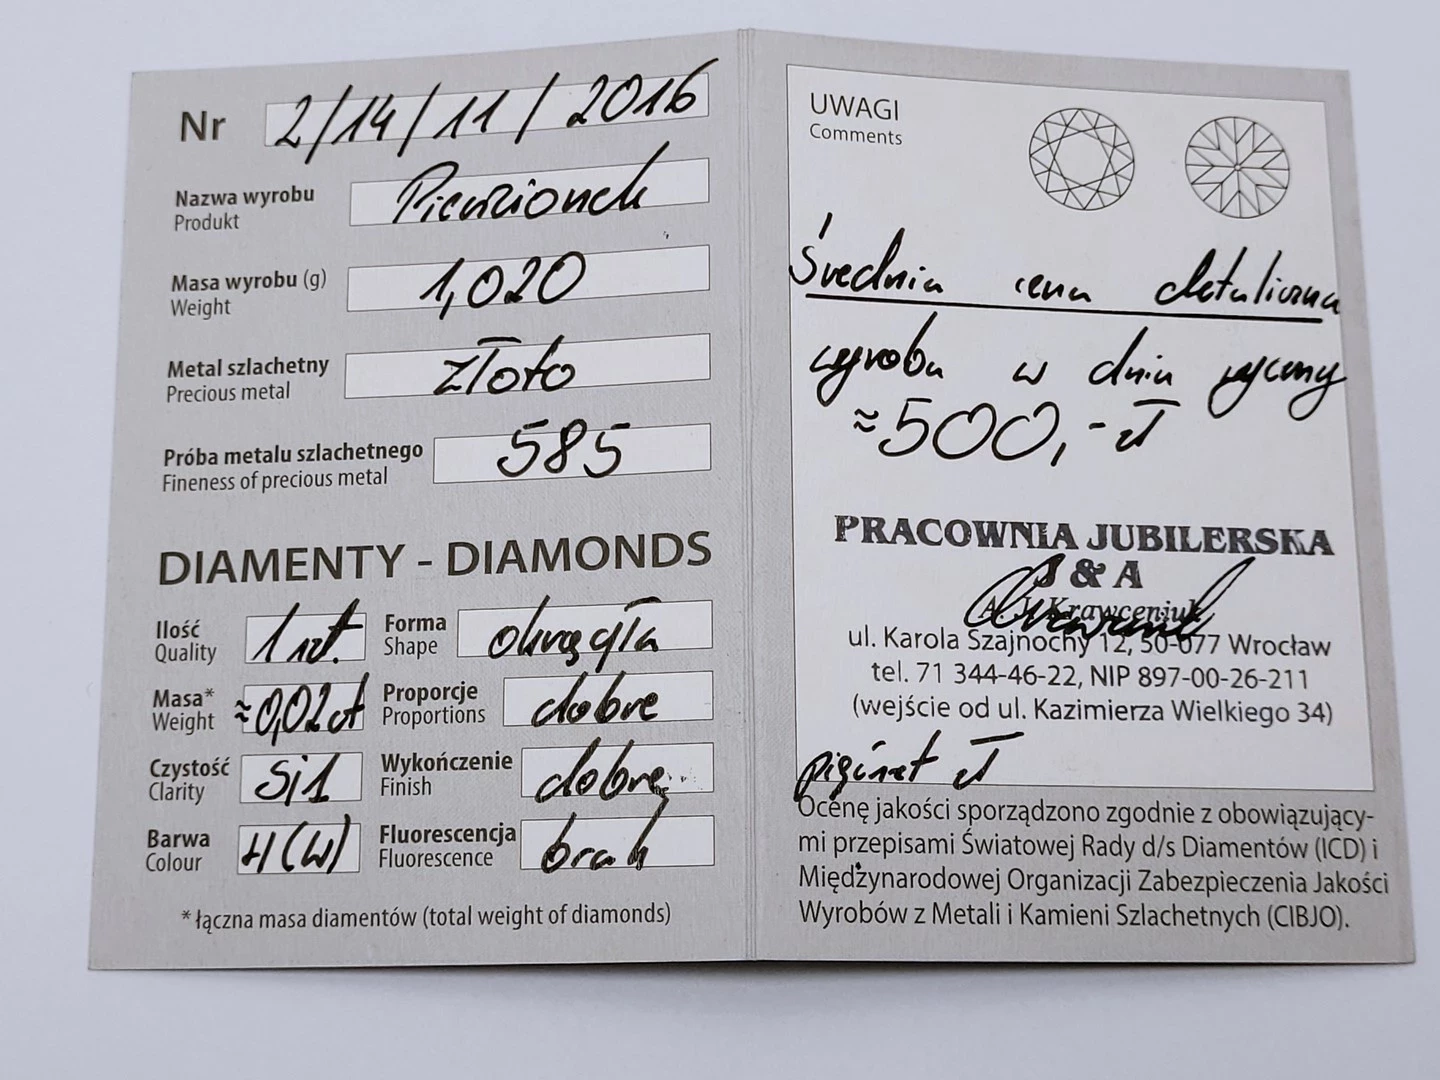 Nr 2/14/11/2016
Nazwa wyrobu Pierścionek
Produkt
Masa wyrobu (g) 1,020
Weight
Metal szlachetny złoto
Precious metal
Próba metalu szlachetnego 585
Fineness of precious metal
DIAMENTY - DIAMONDS
Ilość 1 szt. Forma okrągła
Quality Shape
Masa* ≈0,02ct Proporcje dobre
Weight Proportions
Czystość Si1 Wykończenie dobre
Clarity Finish
Barwa H(W) Fluorescencja brak
Colour Fluorescence
* łączna masa diamentów (total weight of diamonds)
UWAGI
Comments
Średnia cena detaliczna
wyrobu w dniu wyceny
≈500,- zł
PRACOWNIA JUBILERSKA
J & A
A. J. Krawceniuk
ul. Karola Szajnochy 12, 50-077 Wrocław
tel. 71 344-46-22, NIP 897-00-26-211
(wejście od ul. Kazimierza Wielkiego 34)
pięćset zł
Ocenę jakości sporządzono zgodnie z obowiązujący-
mi przepisami Światowej Rady d/s Diamentów (ICD) i
Międzynarodowej Organizacji Zabezpieczenia Jakości
Wyrobów z Metali i Kamieni Szlachetnych (CIBJO).